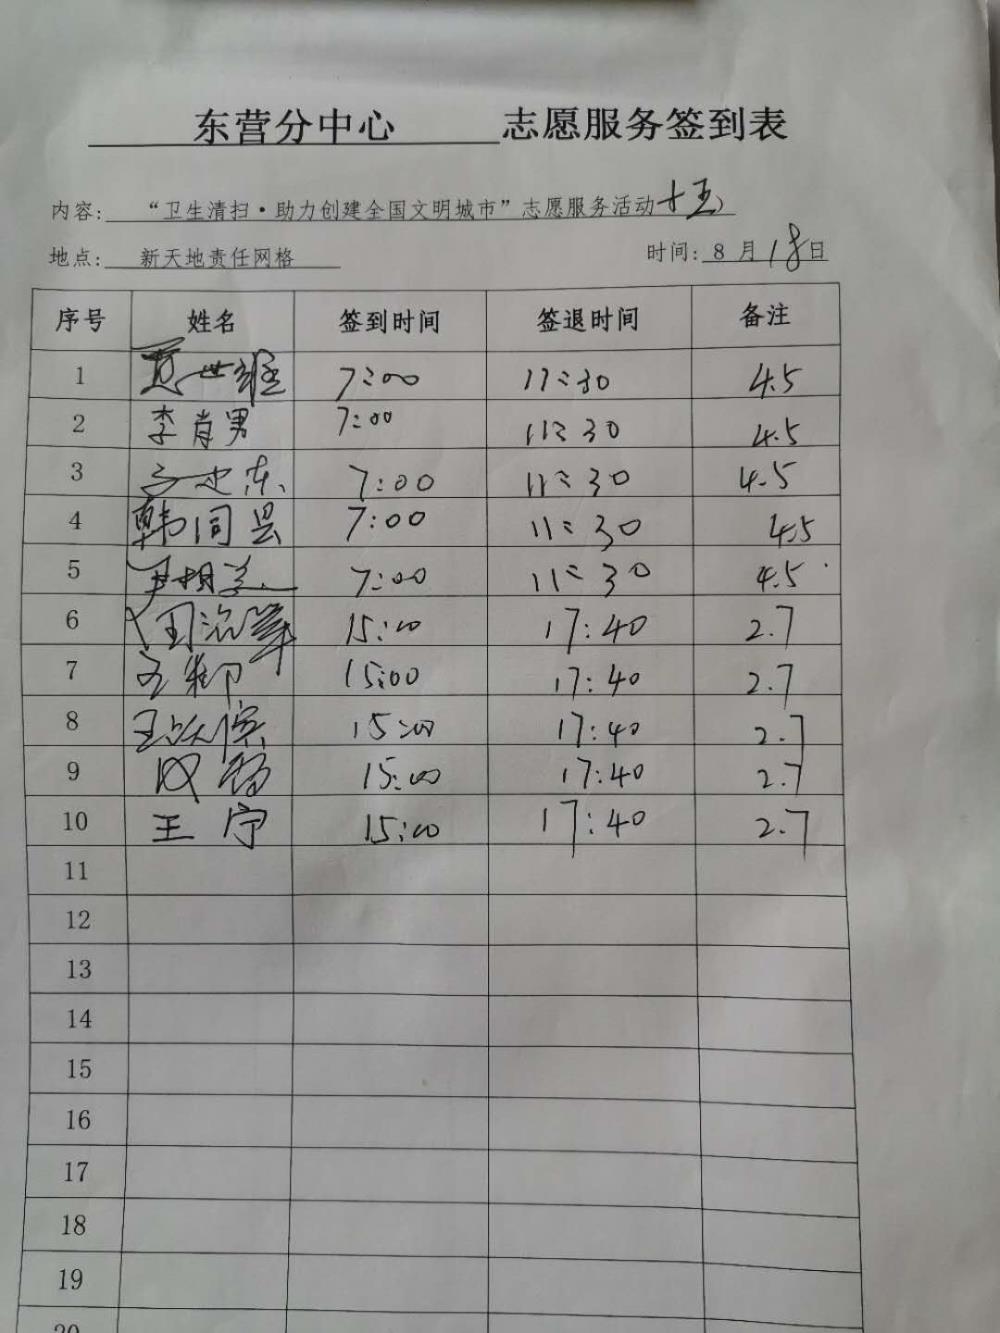 东营分中心 志愿服务签到表
内容: “卫生清扫·助力创建全国文明城市”志愿服务活动十五)
地点: 新天地责任网格 时间: 8 月 18 日
序号 姓名 签到时间 签退时间 备注
1 世 7:00 11:30 4.5
2 李肖男 7:00 11:30 4.5
3 7:00 11:30 4.5
4 韩同昙 7:00 11:30 4.5
5 7:00 11:30 4.5
6 15:00 17:40 2.7
7 15:00 17:40 2.7
8 王 15:00 17:40 2.7
9 15:00 17:40 2.7
10 王宁 15:00 17:40 2.7
11
12
13
14
15
16
17
18
19
20